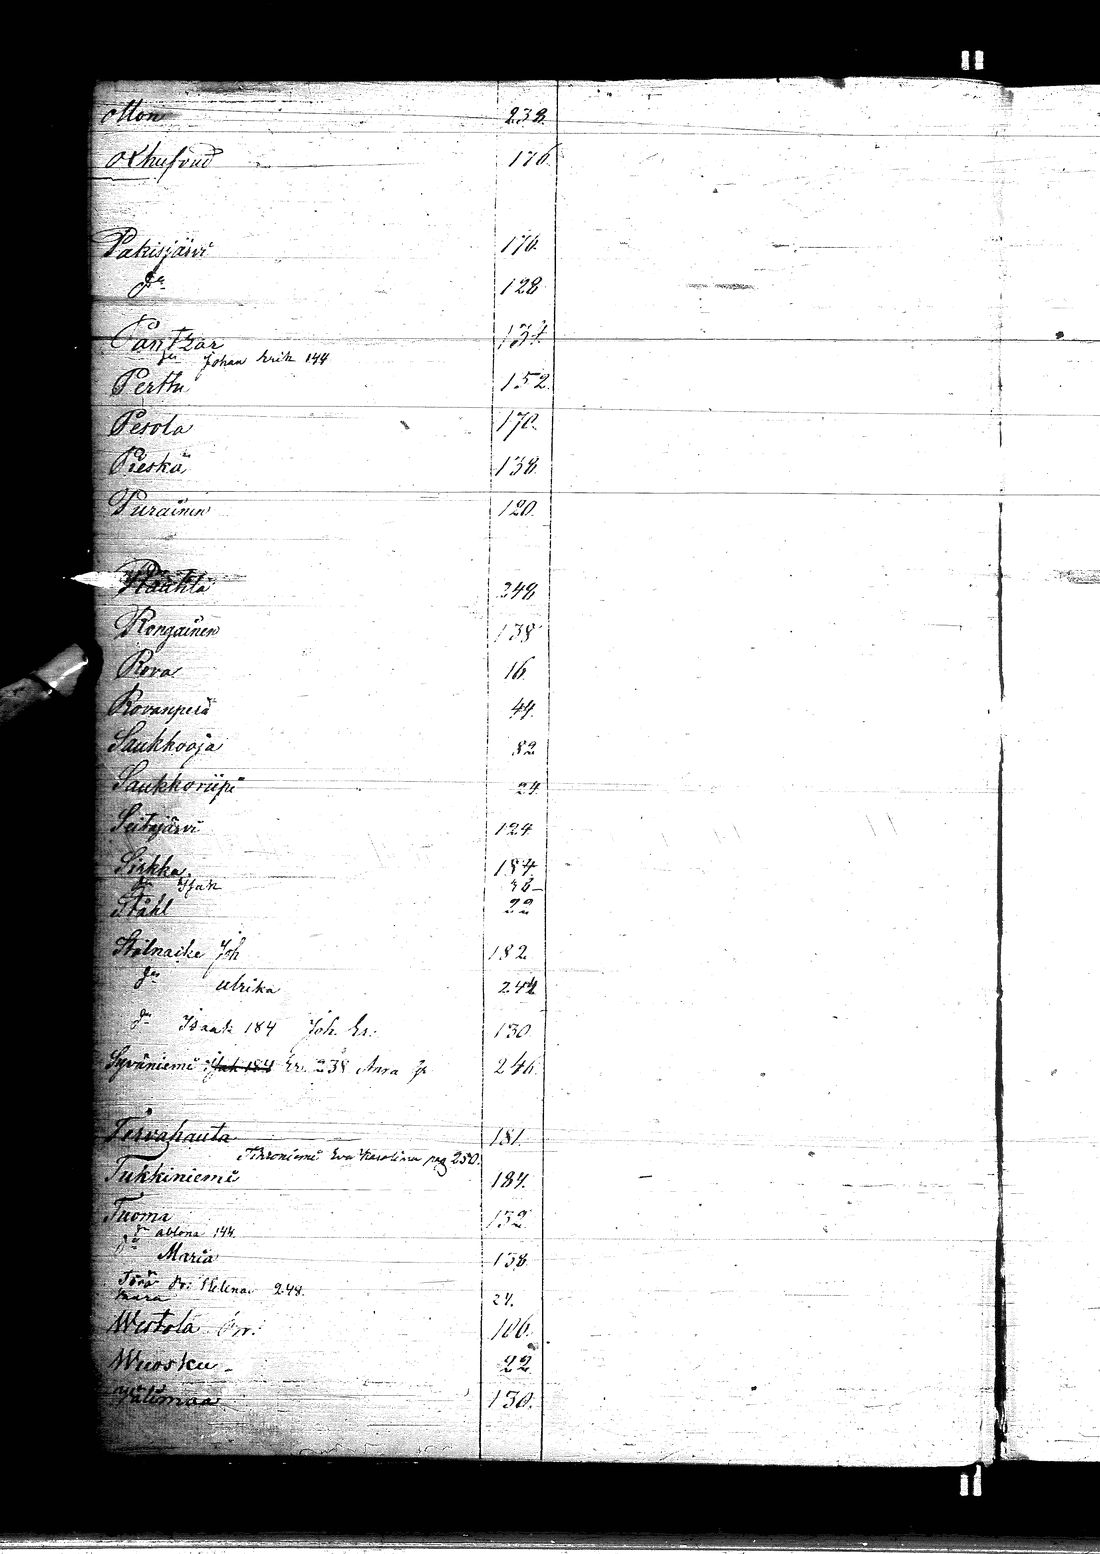 Otton 238.
Okhufvud 176.
Pakisjärvi 176.
do 128
Pantzar 134.
do Johan Erik 144
Perttu 152.
Pesola 170.
Pieskä 138
Purainen 120.
Rauhla 248
Rongainen 138
Rova 16.
Rovanperä 44.
Saukkooja 82
Saukkoriipi 24
Seitajärvi 124
Sirkka 184.
do Isak 36
Ståhl 22
Stålnacke Joh 182
do Ulrika 244
do Isaak 184 Joh. Er: 130
Syväniemi Isak 184 Er. 238 Anna 246.
Tervahauta 181.
Eva Karolina pag 250.
Tukkiniemi 184.
Tuoma 132
do 144.
do Maria 138.
Helena 248.
24.
Westola 106.
Wuosku 22
Ylitimaa 130.